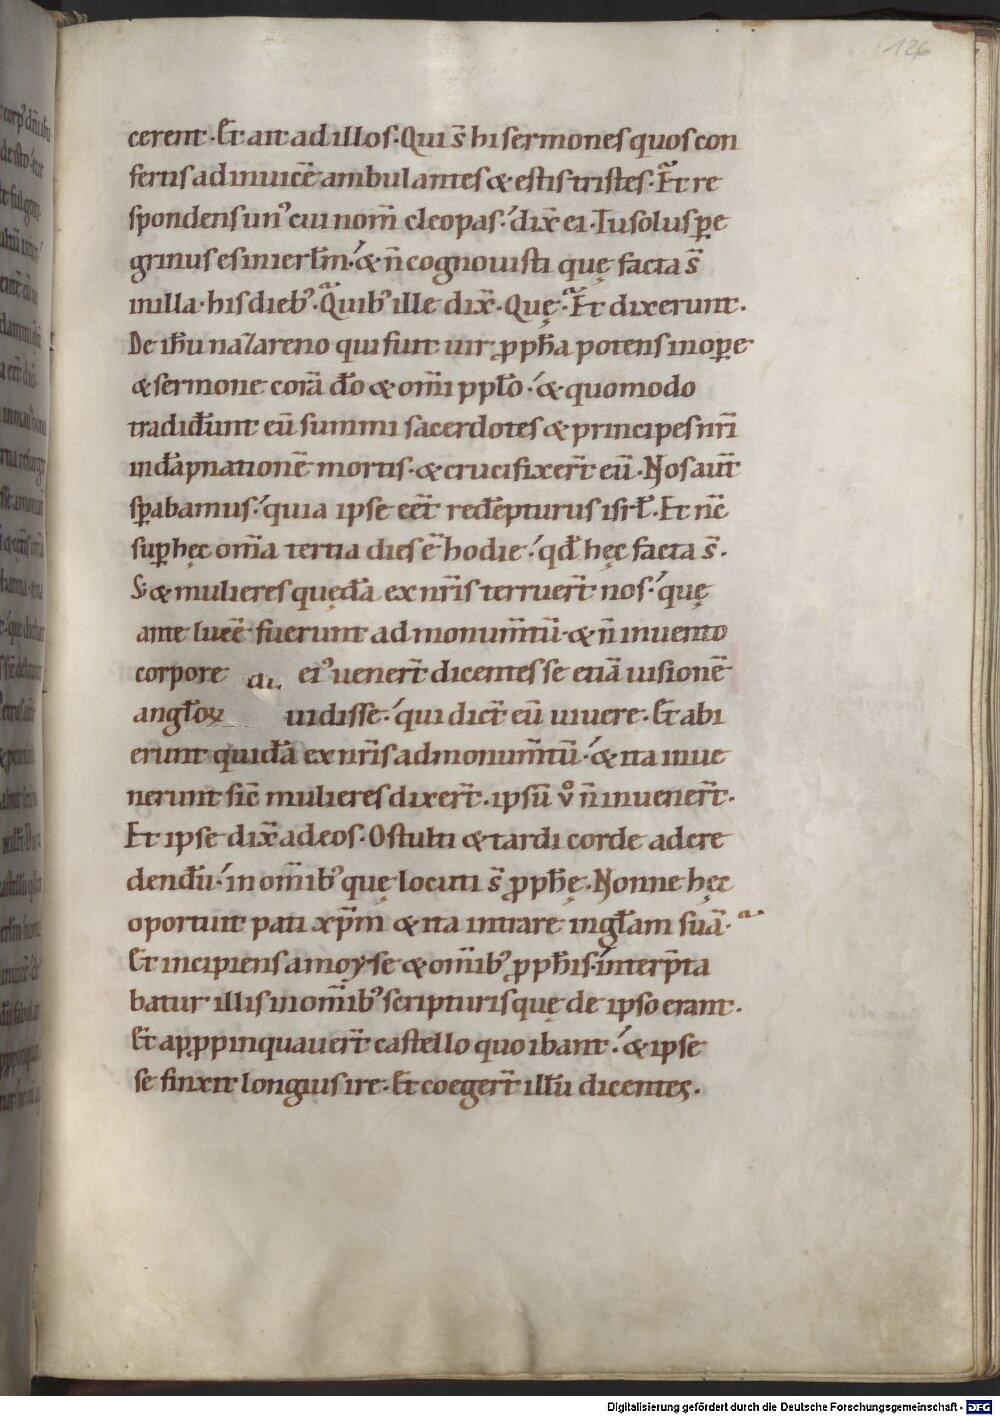 126
cerent · Et ait ad illos · Qui s̄ hi sermones quos con
fertis ad inuicē ambulantes & estis tristes · Et re
spondens unꝰ cui nom̄ cleopas · dix̄ ei · Tu solus ꝑe
grinus es in ierłm · & n̄ cognouisti quę facta s̄
in illa · his diebꝰ · Quibꝰ ille dix̄ · Quę · Et dixerunt ·
De ih̄u naZareno qui fuit uir ꝓph̄a potens in oꝑe
& sermone corā d̄o & om̄i ppło · & quomodo
tradid̄unt eū summi sacerdotes & principes nr̄i
in dāpnationē mortis · & crucifixer̄t eū · Nos aut̄
sꝑabamus · quia ipse eēt redēpturus isrł · Et nc̄
suꝑ hęc om̄a tertia dies ē hodie · qđ hęc facta s̄ ·
S; & mulieres quędā ex nr̄is terruer̄t nos · quę
ante lucē fuerunt ad monum̄tū · & n̄ inuento
corpore ei
eiꝰ uener̄t dicentes se etiā uisionē
angłoꝝ uidisse · qui dict̄ eū uiuere · Et abi
erunt quidā ex nr̄is ad monum̄tū · & ita inue
nerunt sic̄ mulieres dixer̄t · ipsū v̊ n̄ inuener̄t ·
Et ipse dix̄ ad eos · O stulti & tardi corde ad cre
dend̄u · in om̄ibꝰ quę locuti s̄ ꝓph̄ę · Nonne hęc
oportuit pati xp̄m & ita intrare in głam suā ·
Et incipiens a moyse & om̄ibꝰ ꝓph̄is · interp̄ta
batur illis in om̄ibꝰ scripturis quę de ipso erant ·
Et apꝓpinquauer̄t castello quo ibant · & ipse
se finxit longius ire · Et coeger̄t illū dicentes ·
Digitalisierung gefördert durch die Deutsche Forschungsgemeinschaft - DFG